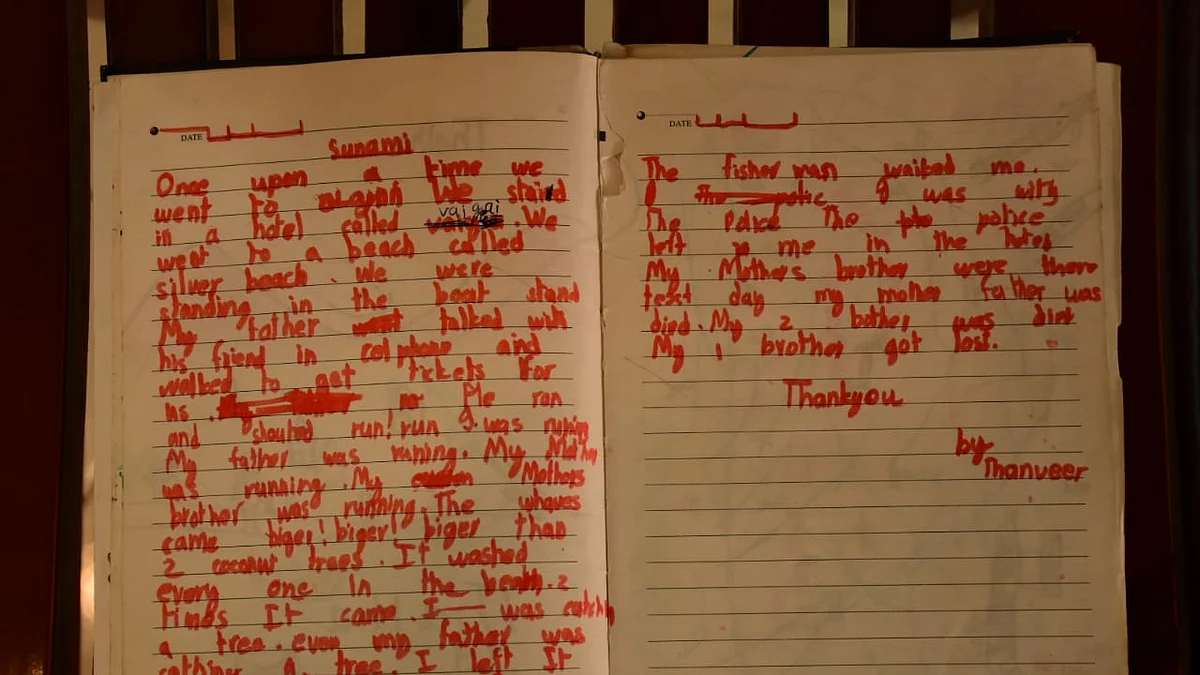 DATE
Sunami
Once upon a time we
went to We staied
in a hotel called vaigai . We
went to a beach called
silver beach . We were
standing in the boat stand
My father talked with
his friend in cell phone and
walked to get tickets For
us . Ple ran
and shouted run! run I was runing
My father was runing . My Mother
was running . My Mothers
brother was running . The whaves
came biger! biger! biger than
2 coconut trees . It washed
every one in the beach . 2
times It came . I was catching
a tree . even my father was
cathing a tree . I left It
DATE
The fisher man waited me .
I was
The The police
left me in the hotel
My Mothers brother were there
text day my mother father was
died . My 2 bother was
My 1 brother got lost .
Thankyou
by
Thanveer